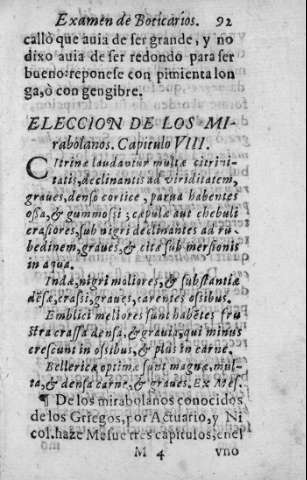 Examen de Boticarios. 92
callò que auia de ser grande, y no
dixo auia de ser redondo para ser
bueno: reponese con pimienta lon
ga, ò con gengibre.
ELECCION DE LOS MI-
rabolanos. Capitulo VIII.
CItrinæ laudantur multæ citrini-
tatis, declinantis ad viriditatem,
graues, densa cortice, parua habentes
ossa, & gummossi; capulæ aut chebuli
crasiores, sub nigri declinantes ad ru-
bedinem, graues, & citè sub mersionis
in aqua.
Indæ, nigri meliores, & substantiæ
dẽsæ, crassi, graues, carentes ossibus.
Emblici meliores sunt habẽtes fru
stra crassa densa, & grauia, qui minus
crescunt in ossibus, & plus in carne.
Bellericæ optimæ sunt magnæ, mul-
ta, & densa carne, & graues. Ex Mes.
¶ De los mirabolanos conocidos
de los Griegos, por Actuario, y Ni
col. haze Mesue tres capitulos, enel
M 4 vno